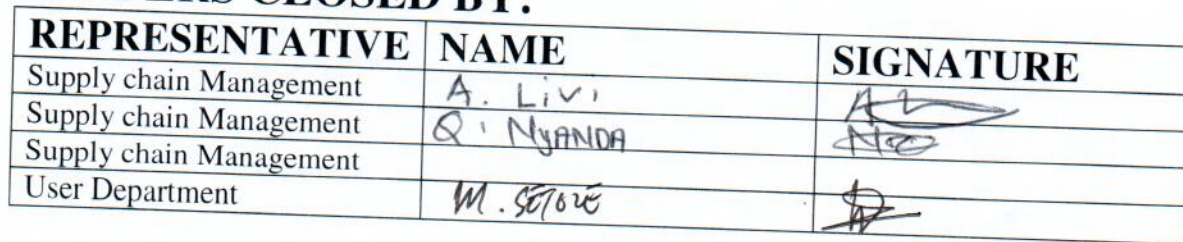 CLOSED BY:
REPRESENTATIVE NAME SIGNATURE
Supply chain Management A. Livi
Supply chain Management Q. NYANDA
Supply chain Management
User Department M.